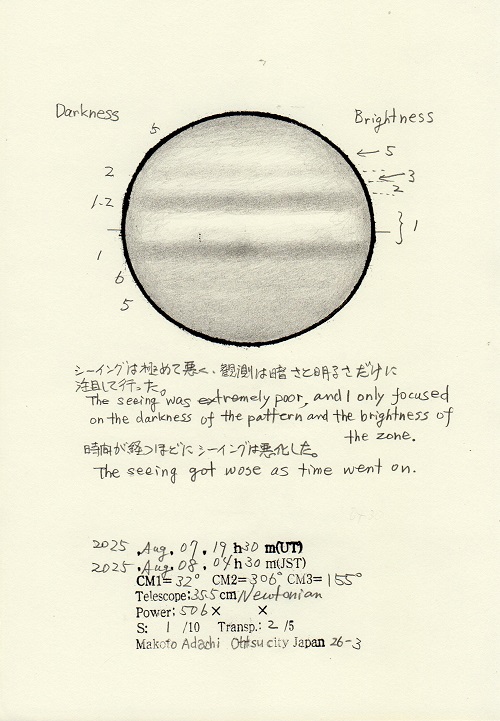 Darkness
Brightness
5
5
2
3
2
1-2
1
1
6
5
シーイングは極めて悪く、観測は暗さと明るさだけに
注目して行った。
The seeing was extremely poor, and I only focused
on the darkness of the pattern and the brightness of
the zone.
時間が経つほどにシーイングは悪化した。
The seeing got wose as time went on.
2025 .Aug. 07 . 19 h30 m(UT)
2025 .Aug. 08 . 04 h30 m(JST)
CM1= 32° CM2= 306° CM3= 155°
Telescope: 35.5cm Newtonian
Power: 506 × ×
S: 1 /10 Transp.: 2 /5
Makoto Adachi Ohtsu city Japan 26-3